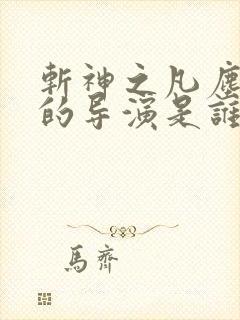 斬神之凡塵
的导演是誰
馬齊